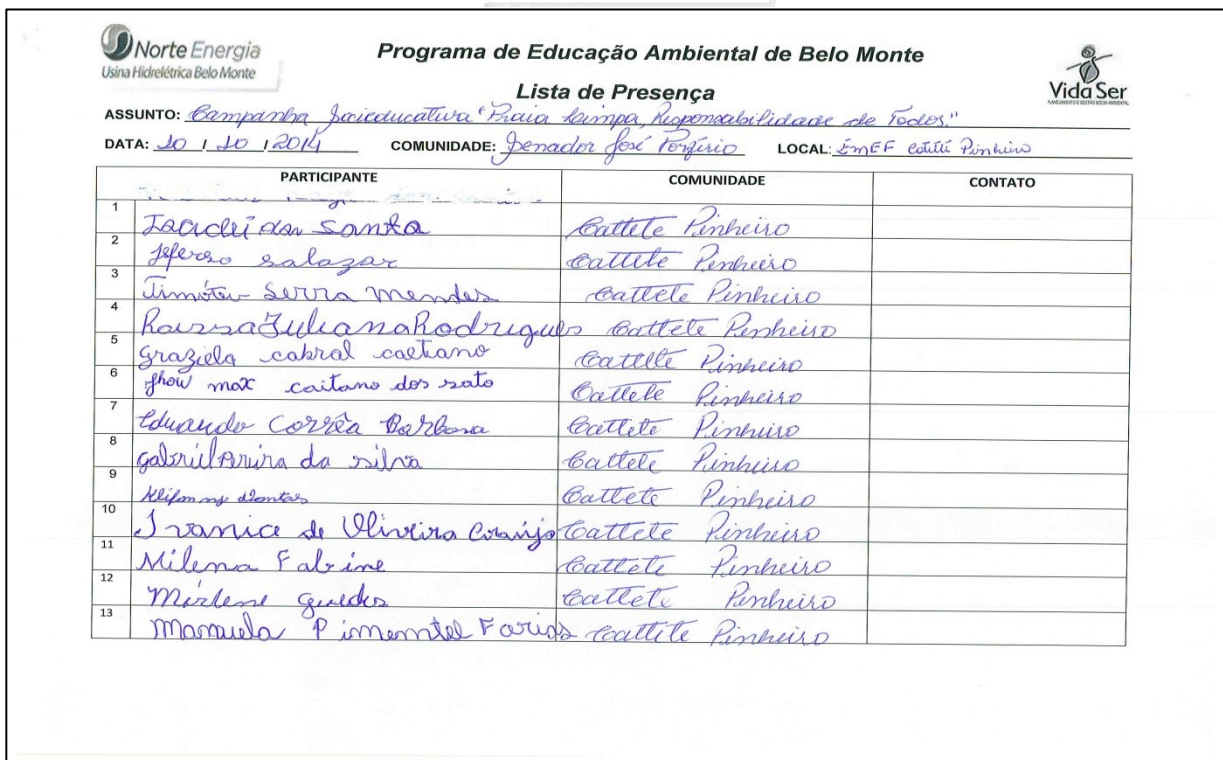 Norte Energia
Usina Hidrelétrica Belo Monte
Programa de Educação Ambiental de Belo Monte
Lista de Presença
Vida Ser
ASSUNTO: Campanha Socioeducativa "Praia Limpa, Responsabilidade de Todos."
DATA: 10 / 10 / 2014 COMUNIDADE: Senador José Porfírio LOCAL: EMEF Pinheiro
PARTICIPANTE COMUNIDADE CONTATO
1 Santa Cattete Pinheiro
2 Jeferso salazar Cattete Pinheiro
3 Timóteo Serra mendes Cattete Pinheiro
4 Raissa Juliana Rodrigues Cattete Pinheiro
5 graziela cabral caetano Cattete Pinheiro
6 Jhow max caitano dos sato Cattete Pinheiro
7 Eduardo Corrêa Barbosa Cattete Pinheiro
8 gabriel Pereira da silva Cattete Pinheiro
9 Cattete Pinheiro
10 Ivanice de Oliveira Araújo Cattete Pinheiro
11 Milena Fabine Cattete Pinheiro
12 Mirlene Guedes Cattete Pinheiro
13 Manuela Pimemtel Farias Cattete Pinheiro